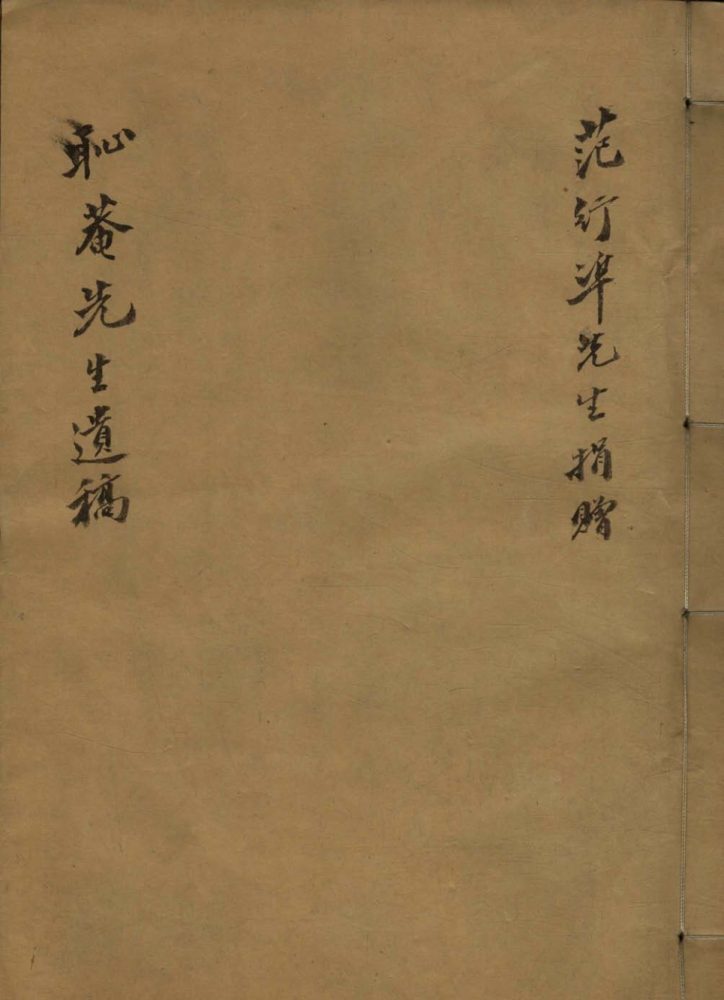 范行準先生捐贈
恥菴先生遺稿